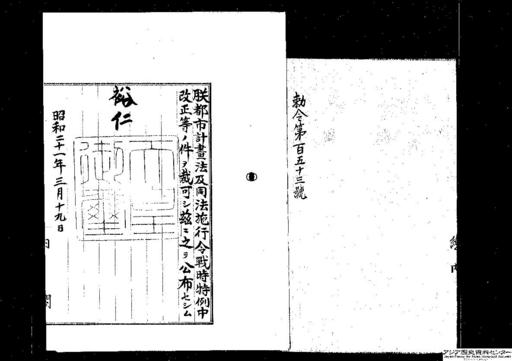 勅令第百五十三號
朕都市計畫法及同法施行令戰時特例中
改正等ノ件ヲ裁可シ茲ニ之ヲ公布セシム
裕仁
天皇御璽
昭和二十一年三月十九日
内閣
アジア歴史資料センター